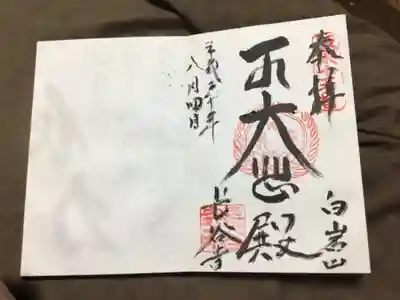 奉拝
白岩山
大悲殿
長谷寺
平成三十年
八月四日